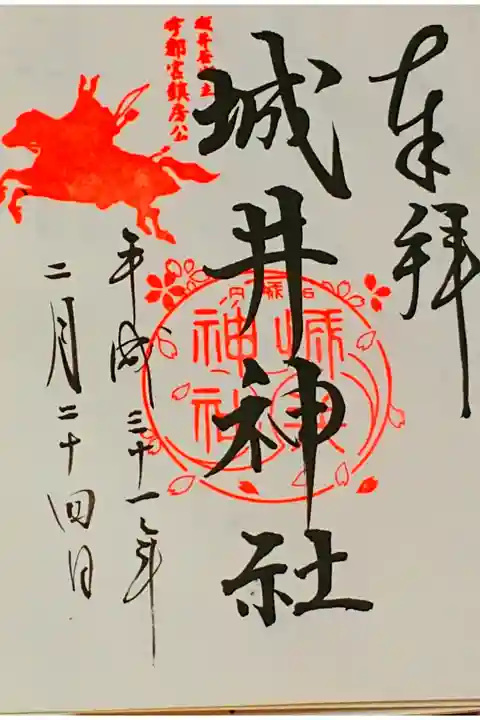 奉拝
城井神社
城井
神社
宇都宮鎮房公
平成三十一年
二月二十四日